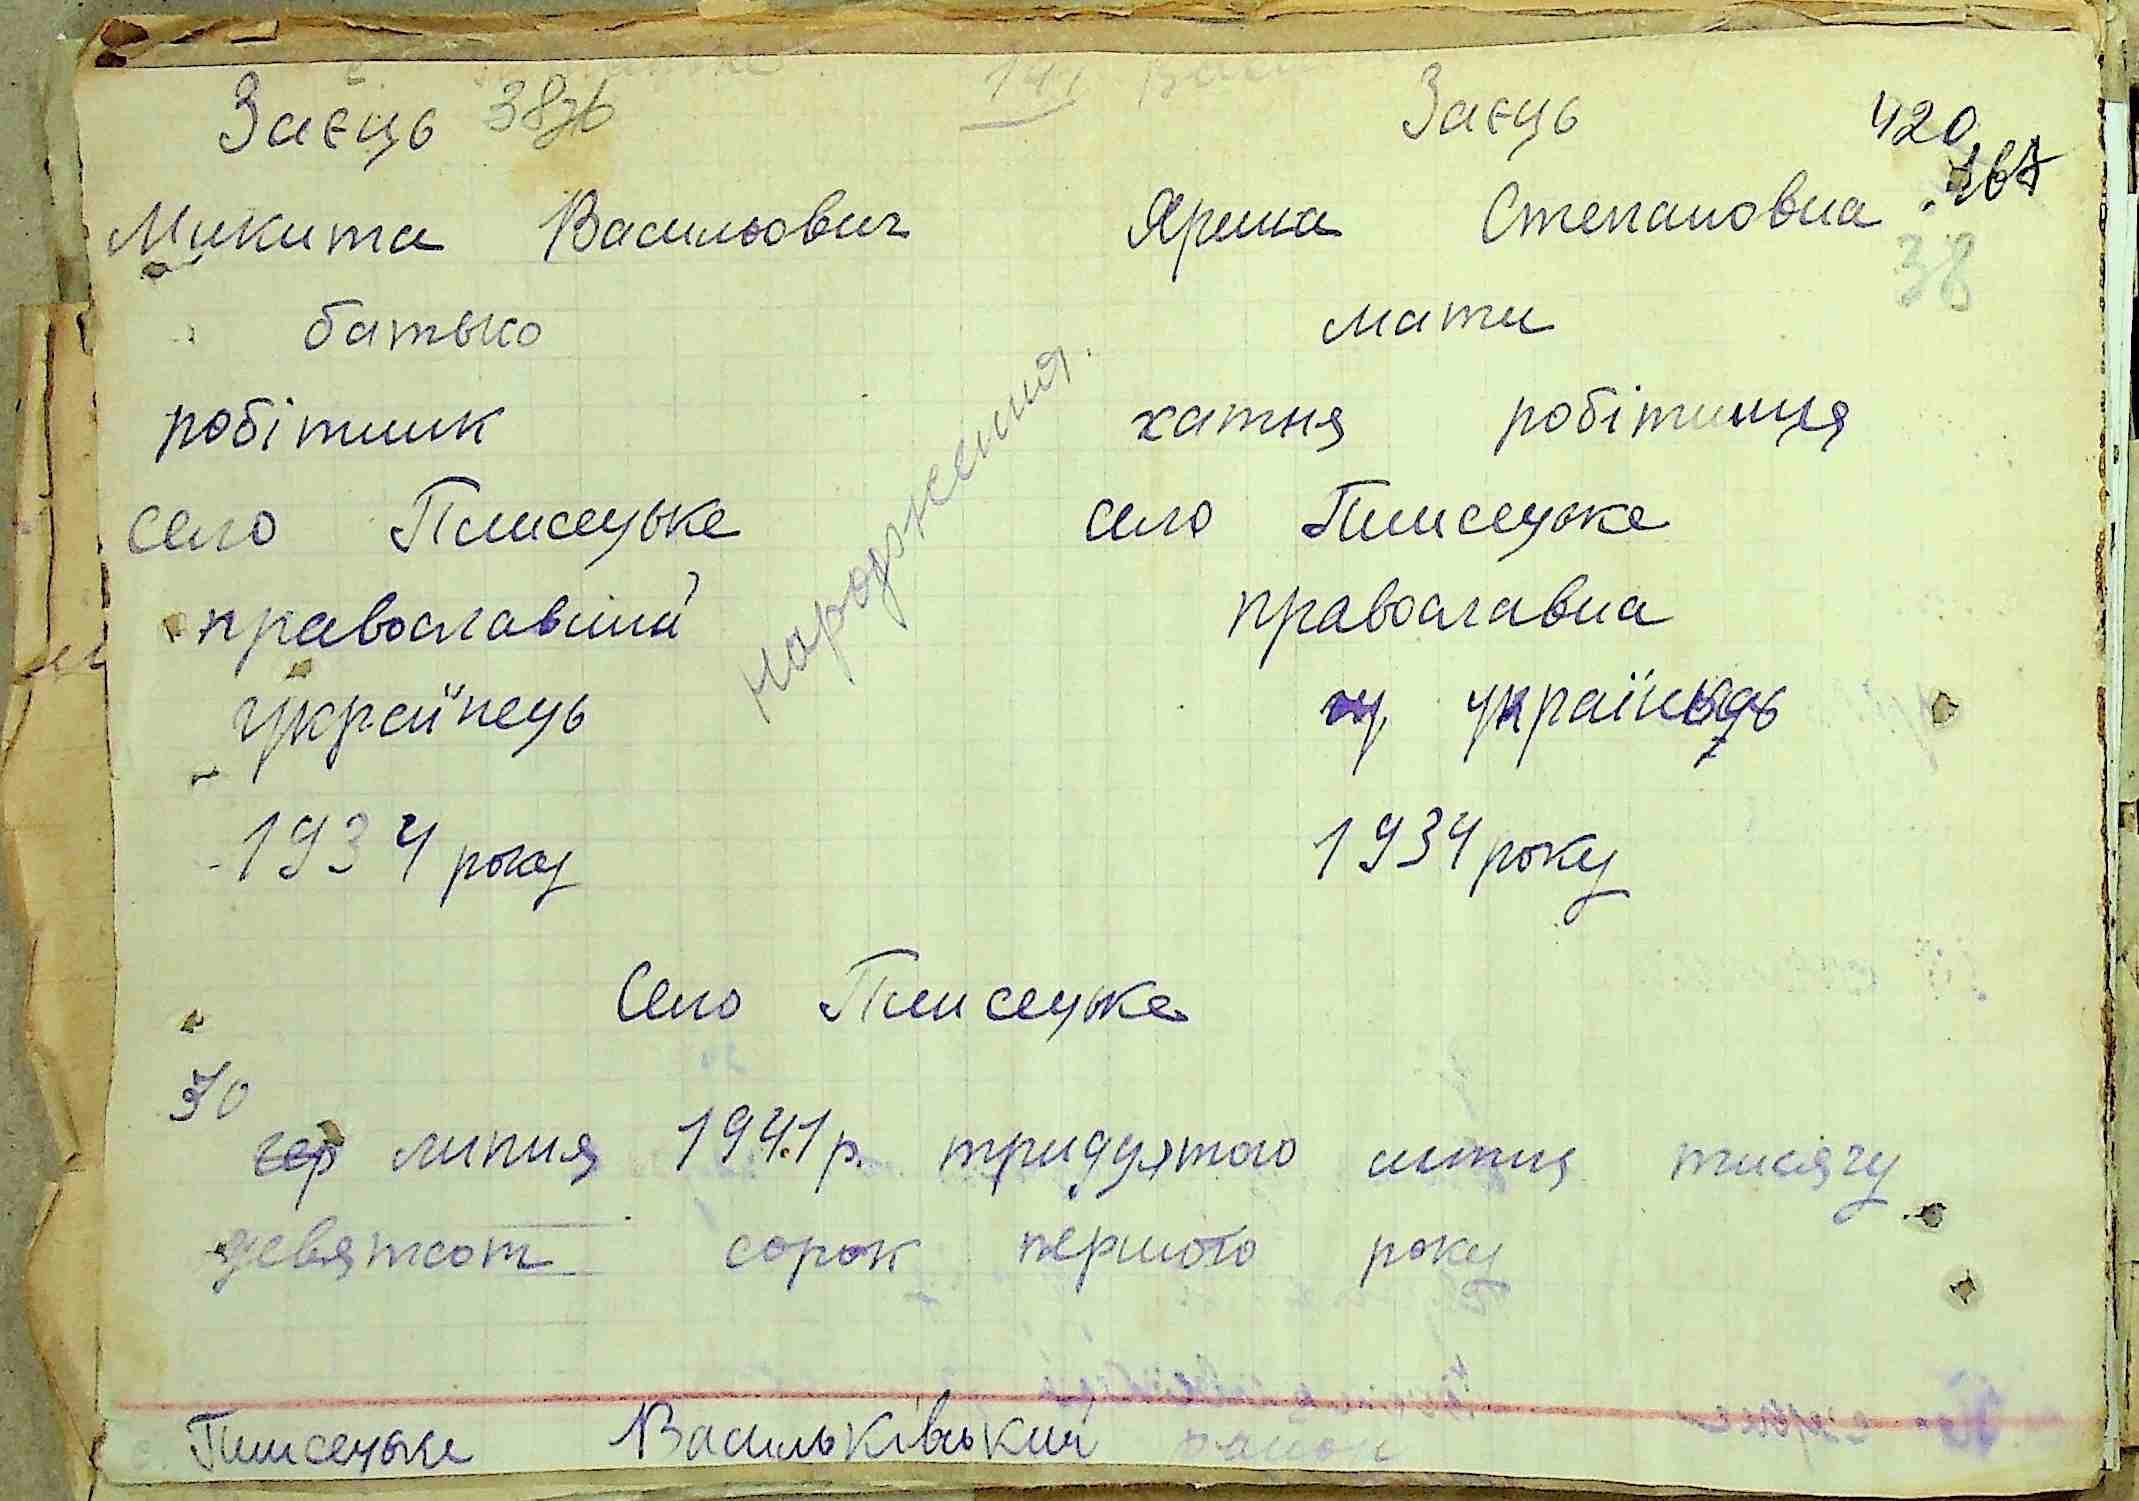 Заєць Заєць 420
Микита Васильович Ярина Степановна 167
38
батько мати
робітник хатня робітниця
народження.
село Плисецьке село Плисецьке
православний православна
українець українець
1934 року 1934 року
Село Плисецьке
30
липня 1941 р. тридцятого липня тисячу
девятсот сорок першого року
с. Плисецьке Васильківський район